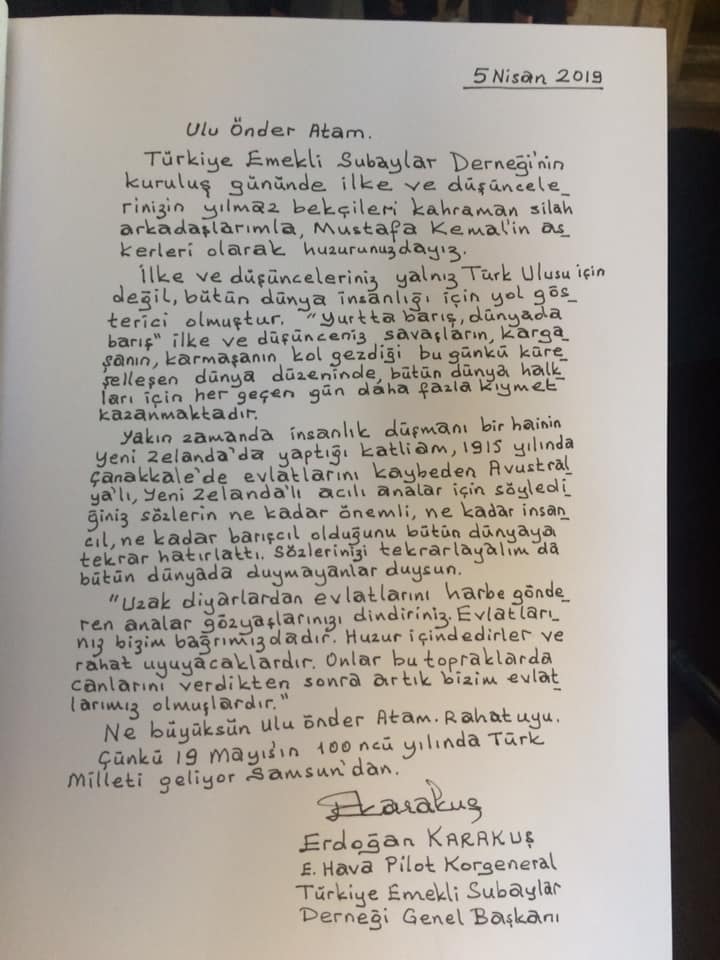 5 Nisan 2019
Ulu Önder Atam.
Türkiye Emekli Subaylar Derneği'nin
kuruluş gününde ilke ve düşüncele_
rinizin yılmaz bekçileri kahraman silah
arkadaşlarımla, Mustafa Kemal'in as_
kerleri olarak huzurunuzdayız.
İlke ve düşünceleriniz yalnız Türk Ulusu için
değil, bütün dünya insanlığı için yol gös_
terici olmuştur. "Yurtta barış, dünyada
barış" ilke ve düşünceniz savaşların, karga_
şanın, karmaşanın kol gezdiği bu günkü küre_
selleşen dünya düzeninde, bütün dünya halk_
ları için her geçen gün daha fazla kıymet
kazanmaktadır.
Yakın zamanda insanlık düşmanı bir hainin
Yeni Zelanda'da yaptığı katliam, 1915 yılında
Çanakkale'de evlatlarını kaybeden Avustral_
ya'lı, Yeni Zelanda'lı acılı analar için söyledi_
ğiniz sözlerin ne kadar önemli, ne kadar insan_
cıl, ne kadar barışcıl olduğunu bütün dünyaya
tekrar hatırlattı. Sözlerinizi tekrarlayalım da
bütün dünyada duymayanlar duysun.
"Uzak diyarlardan evlatlarını harbe gönde_
ren analar gözyaşlarınızı dindiriniz. Evlatları_
nız bizim bağrımızdadır. Huzur içindedirler ve
rahat uyuyacaklardır. Onlar bu topraklarda
canlarını verdikten sonra artık bizim evlat_
larımız olmuşlardır."
Ne büyüksün Ulu önder Atam. Rahat uyu.
Çünkü 19 Mayıs'ın 100 ncü yılında Türk
Milleti geliyor Samsun'dan.
EKarakuş
Erdoğan KARAKUŞ
E. Hava Pilot Korgeneral
Türkiye Emekli Subaylar
Derneği Genel Başkanı